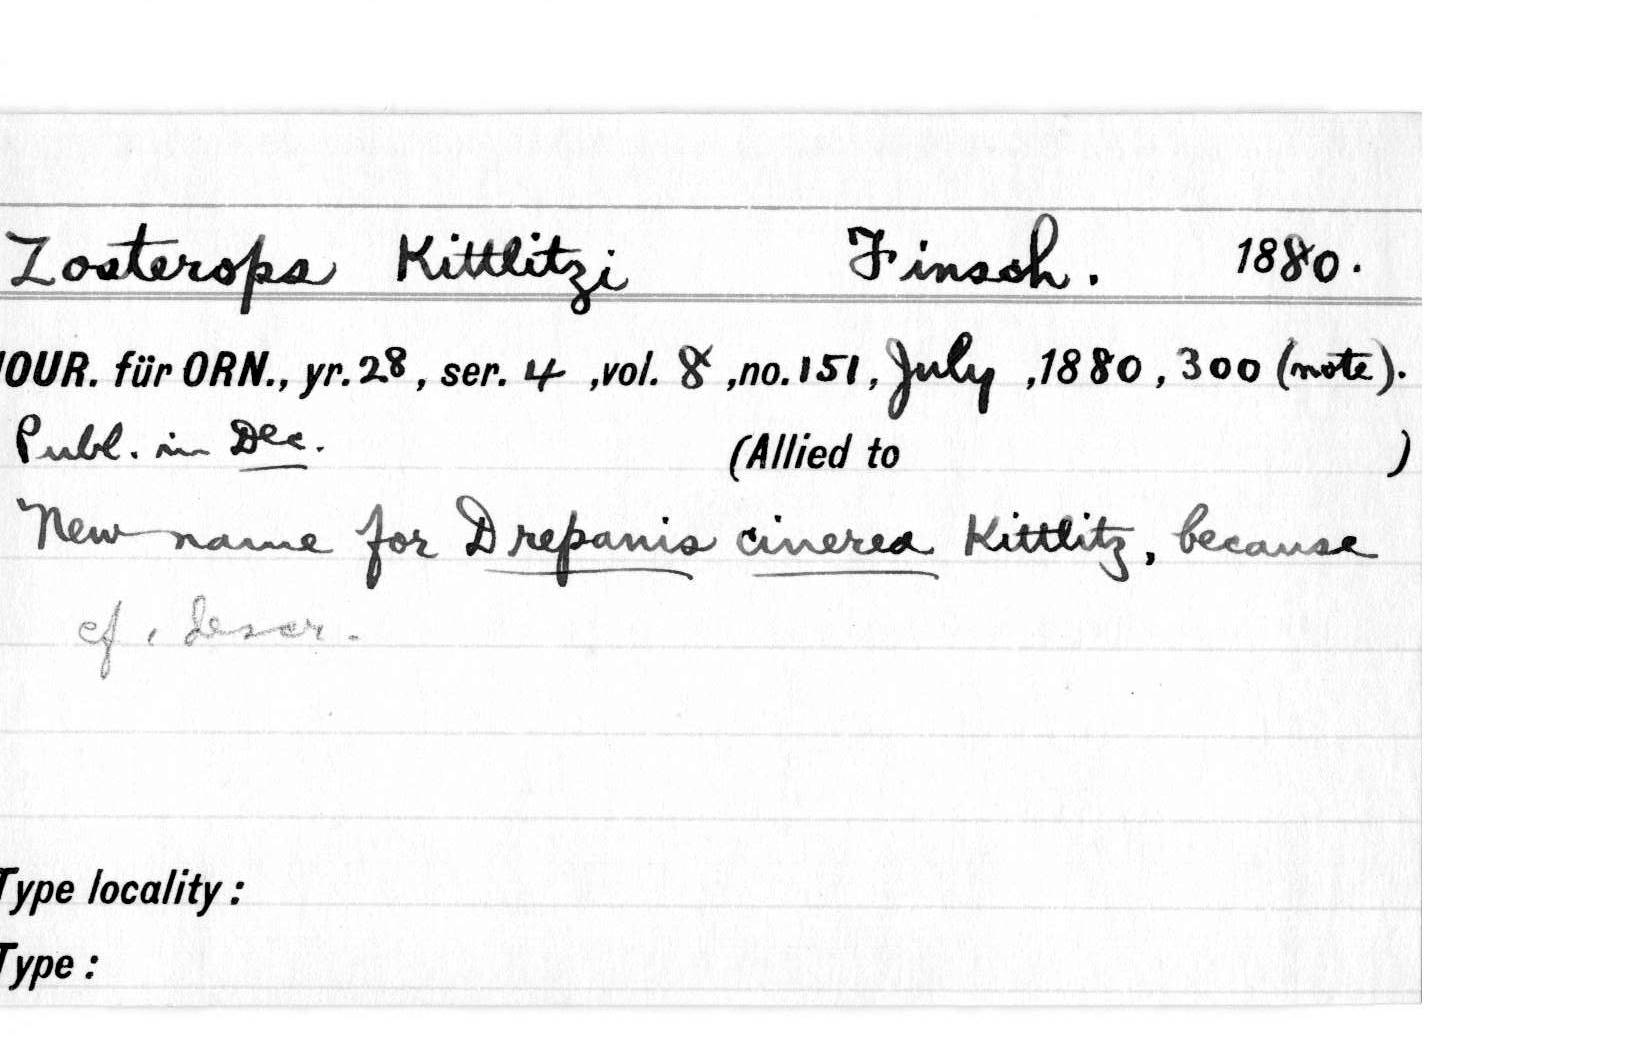 Zosterops Kittlitzi Finsch. 1880.
JOUR. für ORN., yr. 28, ser. 4, vol. 8, no. 151, July, 1880, 300 (note).
Publ. in Dec. (Allied to )
New name for Drepanis cinerea Kittlitz, because
cf. descr.
Type locality:
Type: